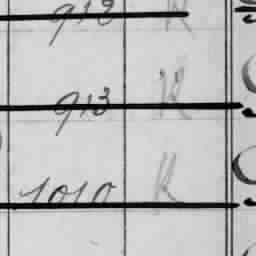 913 K
913 K
1010 K